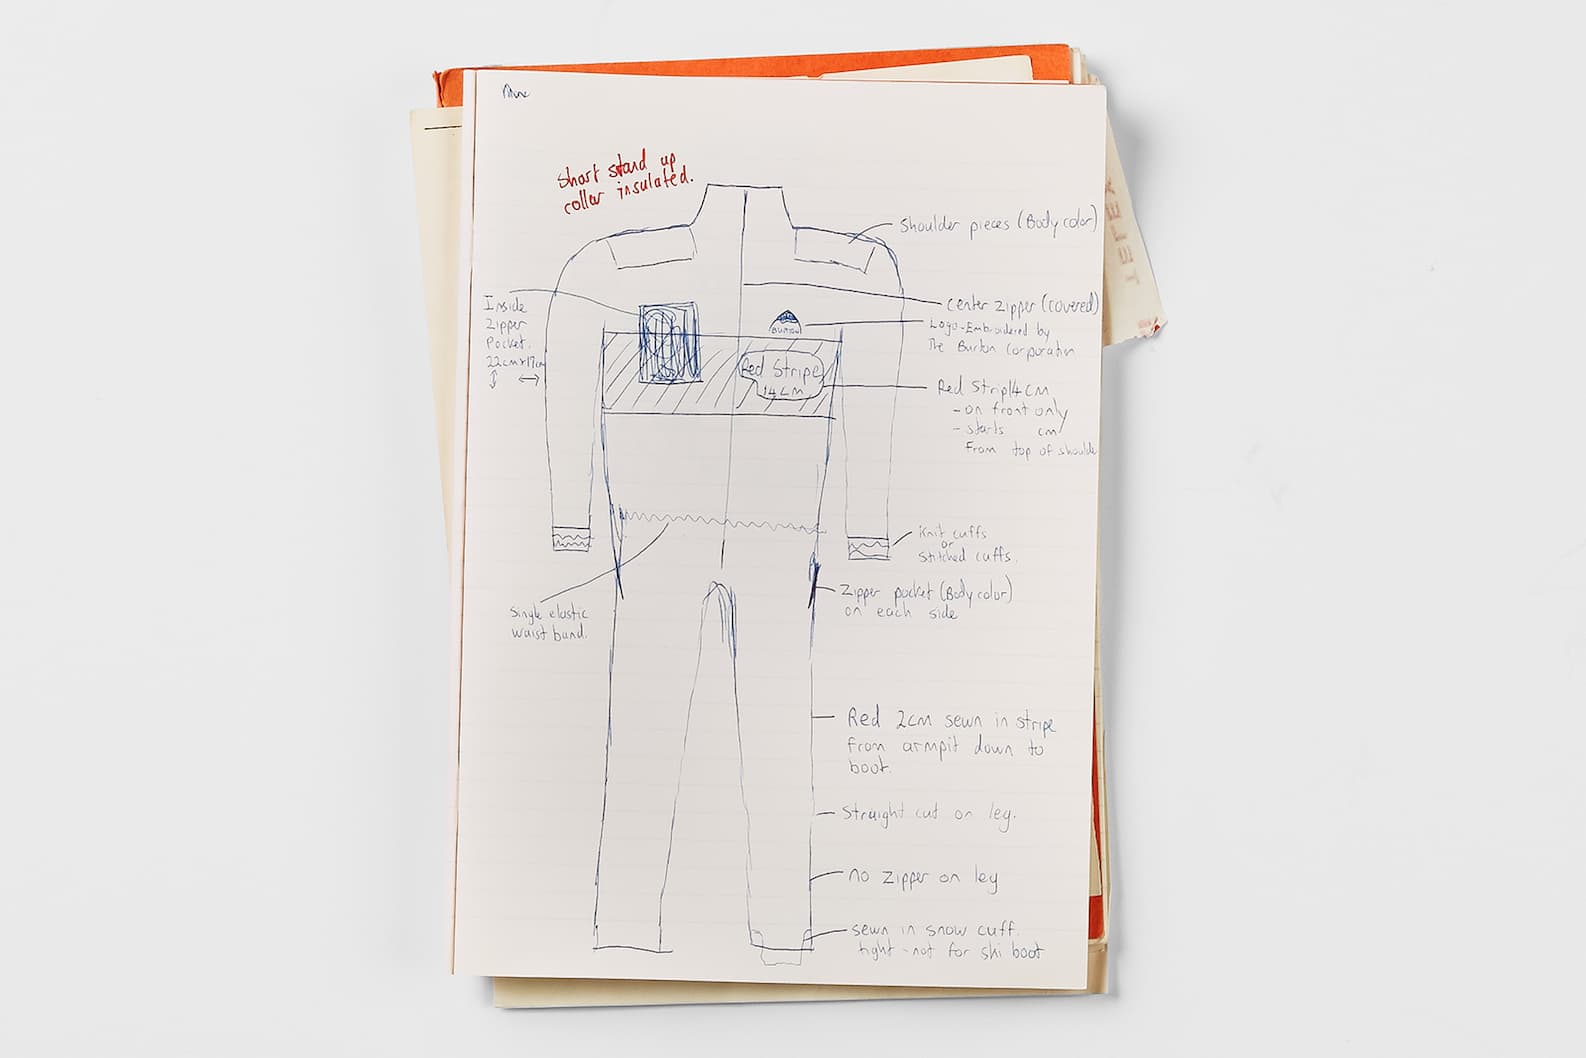 Short stand up
collar insulated.
Shoulder pieces (Body color)
Inside
Zipper
Pocket.
22cm x 17cm
center zipper (covered)
Logo-Embroidered by
The Burton Corporation
BURTON
Red Stripe
14cm
Red Strip 14cm
- on front only
- starts cm
From top of shoulder
Knit cuffs
or
Stitched cuffs.
Zipper pocket (Body color)
on each side
Single elastic
waist band.
Red 2cm sewn in stripe
from armpit down to
boot.
Straight cut on leg.
no zipper on leg
sewn in snow cuff.
tight - not for ski boot